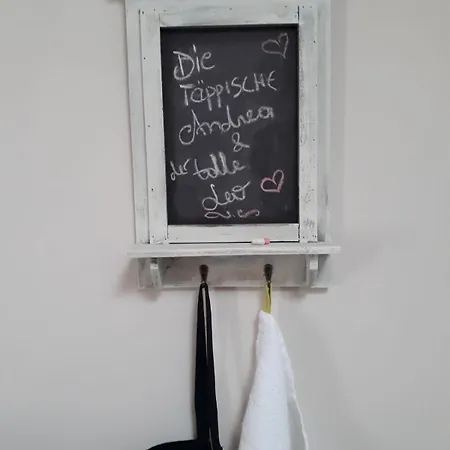 Die
TäppiSCHE
Andrea
&
der tolle
Leo